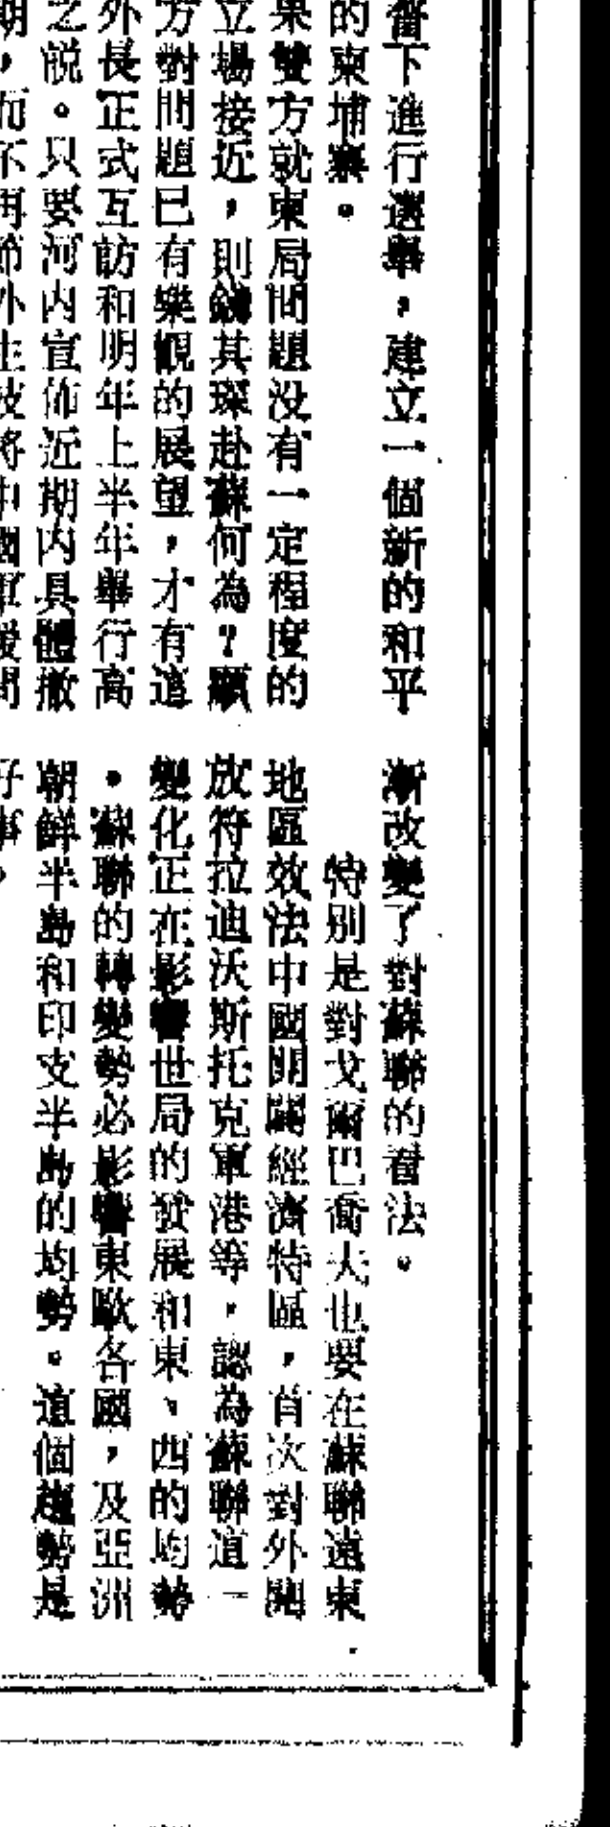 督下進行選舉，建立一個新的和平
的柬埔寨。
果雙方就柬局問題没有一定程度的
立場接近，則錢其琛赴蘇何為？顯
方對問題已有樂觀的展望，才有這
外長正式互訪和明年上半年舉行高
之説。只要河内宣佈近期内具體撤
期，而不再節外生枝將中國軍援問
漸改變了對蘇聯的看法。
特別是對戈爾巴喬夫也要在蘇聯遠東
地區效法中國開闢經濟特區，首次對外開
放符拉迪沃斯托克軍港等，認為蘇聯這一
變化正在影響世局的發展和東、西的均勢
。蘇聯的轉變勢必影響東歐各國，及亞洲
朝鮮半島和印支半島的均勢。這個趨勢是
好事，